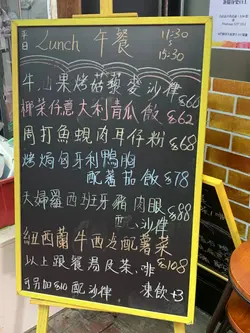 平日 Lunch 午餐 11:30
15:30
牛油果烤菇藜麥沙律 $66
欖菜仔意大利青瓜飯 $62
周打魚蜆肉貝仔粉 $68
烤焗匈牙利鴨胸
配蕃茄飯 $78
天婦羅西班牙豬肉眼
配沙律 $88
紐西蘭牛西冷配薯菜 $108
以上跟餐湯及茶、啡
另加$10 配沙律 凍飲+3